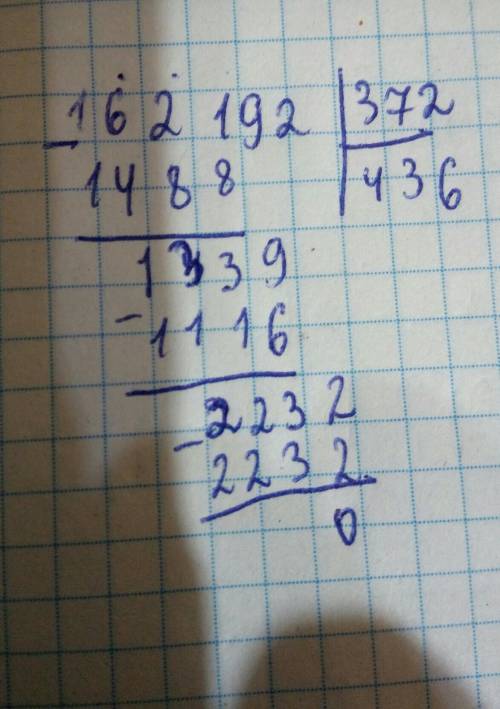 - 162 192 | 372
1488 | 436
1339
- 1116
- 2232
2232
0